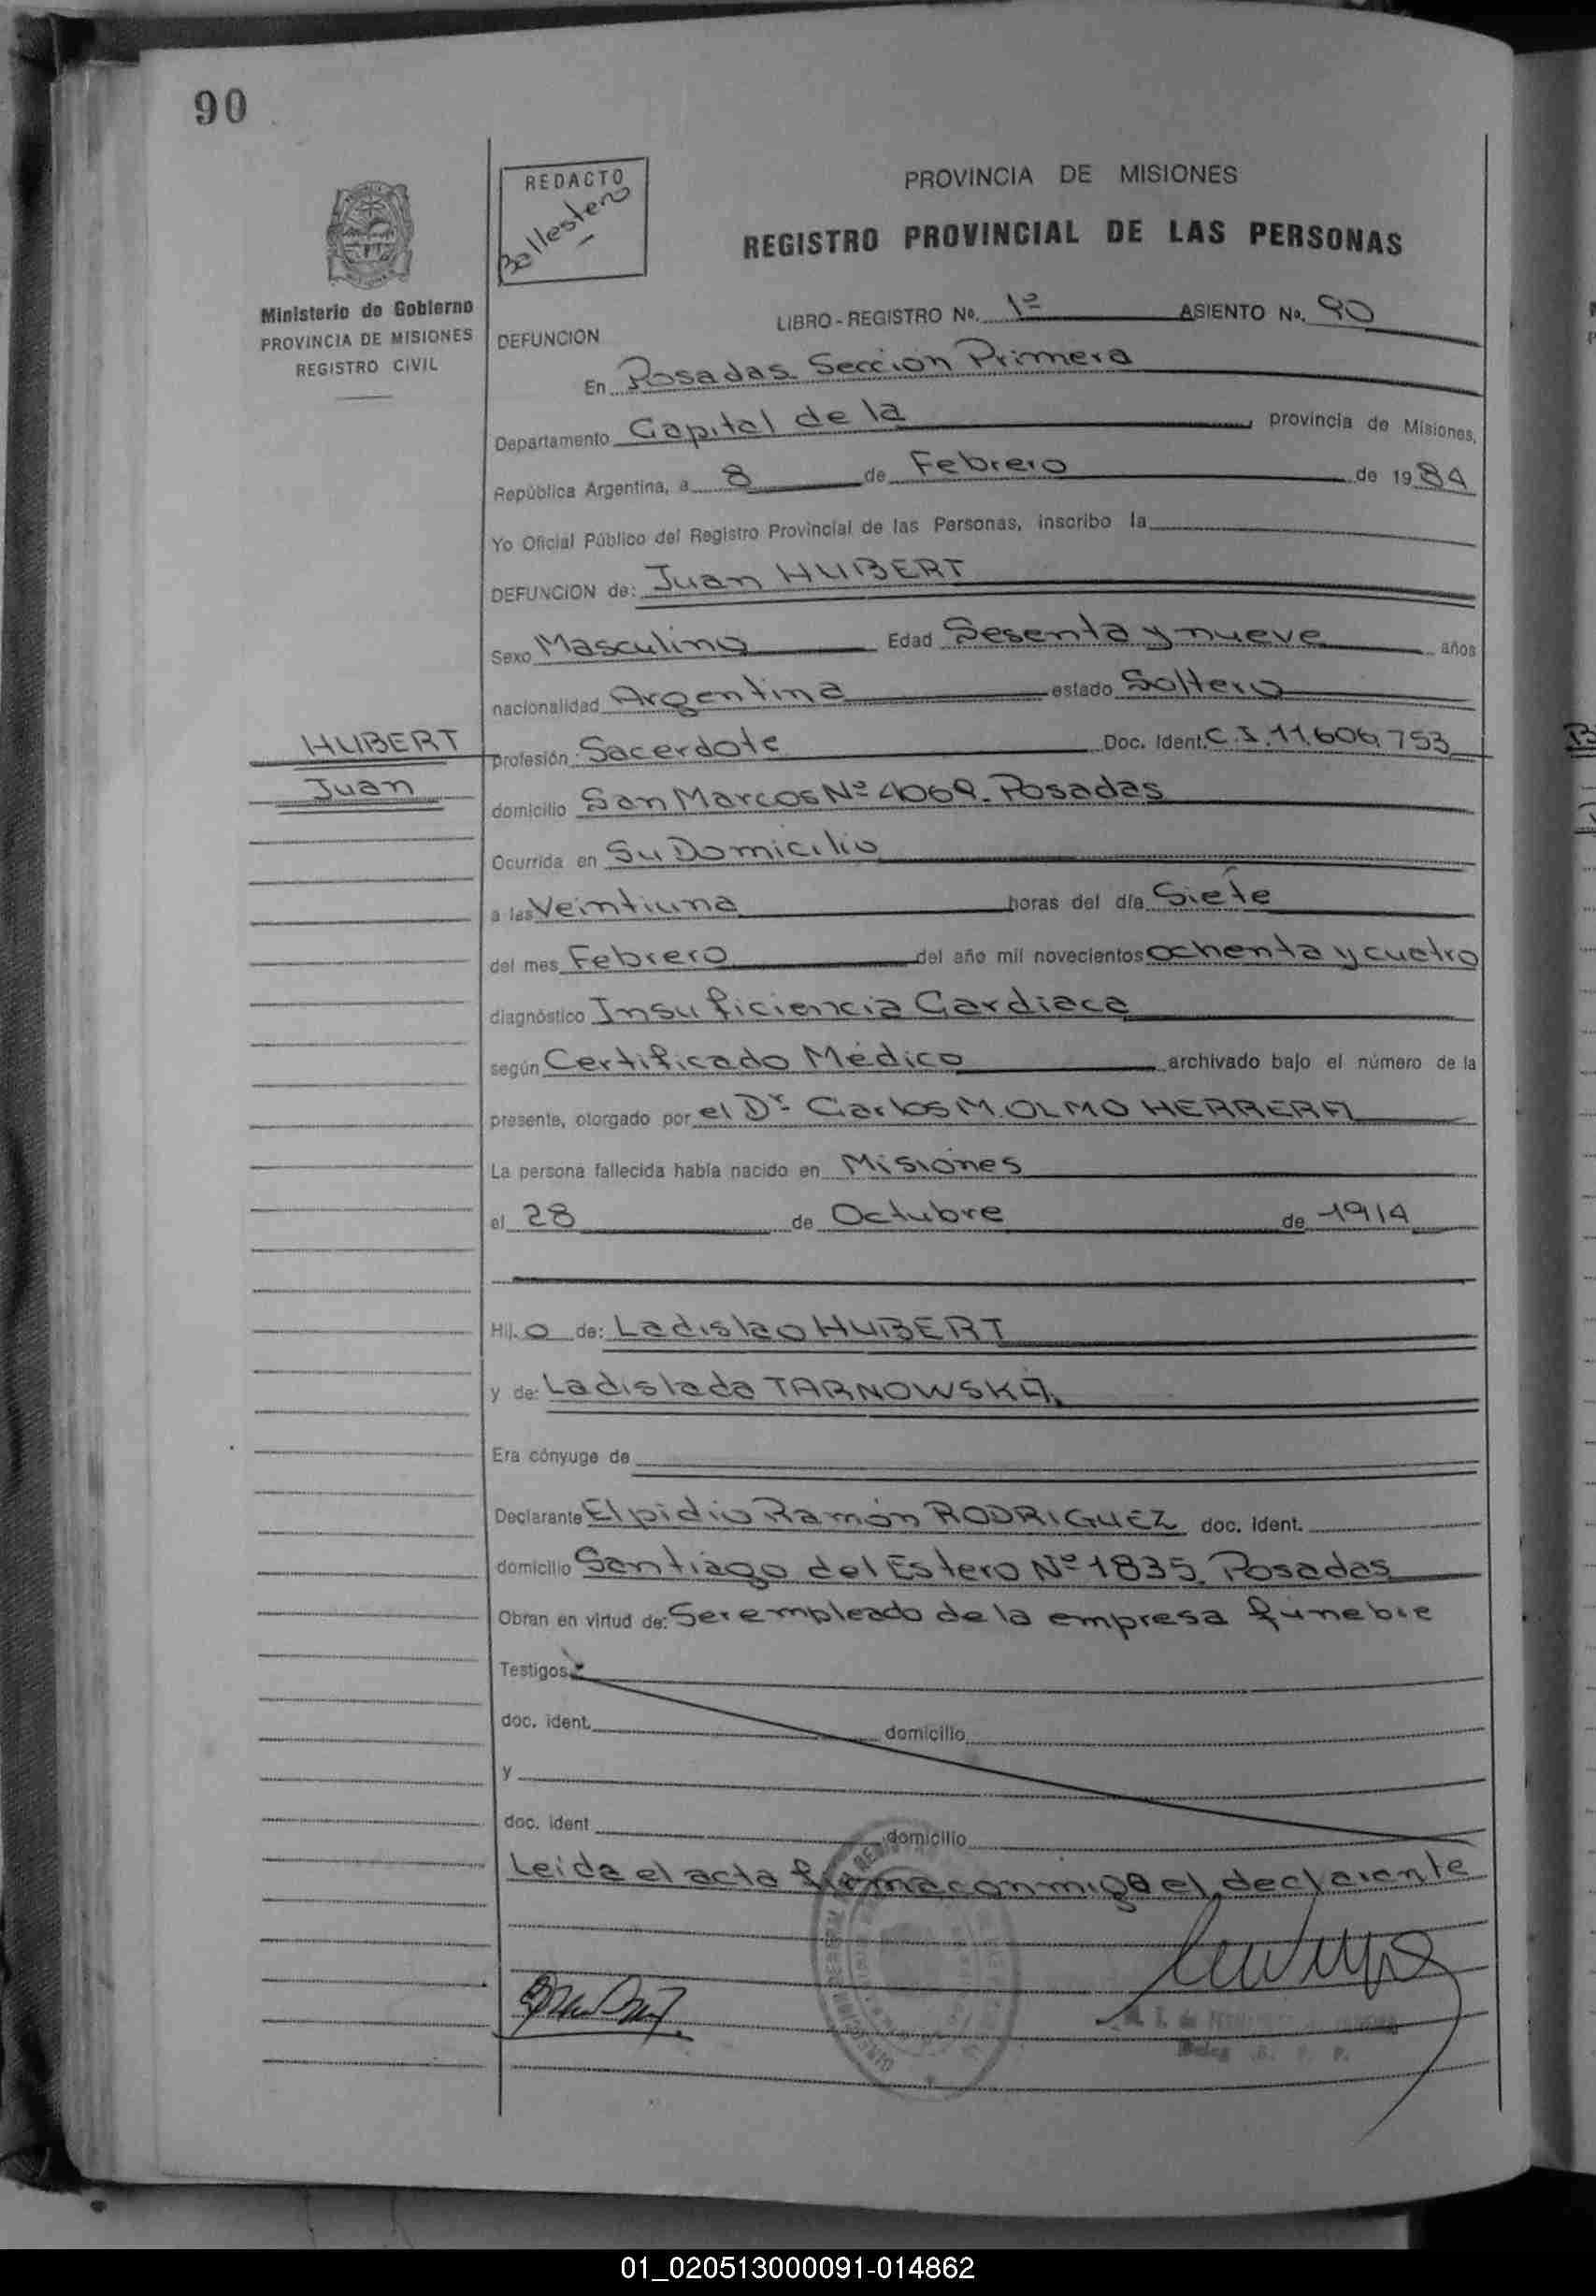 90
REDACTO
Ballestero
PROVINCIA DE MISIONES
REGISTRO PROVINCIAL DE LAS PERSONAS
Ministerio de Gobierno
PROVINCIA DE MISIONES
REGISTRO CIVIL
LIBRO - REGISTRO No. 1º ASIENTO No. 90
DEFUNCION
En Posadas Sección Primera
Departamento Capital de la provincia de Misiones,
República Argentina, a 8 de Febrero de 1984
Yo Oficial Público del Registro Provincial de las Personas, inscribo la
DEFUNCION de: Juan HUBERT
Sexo Masculino Edad Sesenta y nueve años
nacionalidad Argentina estado Soltero
HUBERT
Juan
profesión Sacerdote Doc. Ident. C.I. 11.606.753
domicilio San Marcos Nº 4069. Posadas
Ocurrida en Su Domicilio
a las Veintiuna horas del día Siete
del mes Febrero del año mil novecientos ochenta y cuatro
diagnóstico Insuficiencia Cardiaca
según Certificado Médico archivado bajo el número de la
presente, otorgado por el Dr. Carlos M. OLMO HERRERA
La persona fallecida había nacido en Misiones
el 28 de Octubre de 1914
Hij. o de: Ladislao HUBERT
y de: Ladislada TARNOWSKA.
Era cónyuge de
Declarante Elpidio Ramón RODRIGUEZ doc. ident.
domicilio Santiago del Estero Nº 1835. Posadas
Obran en virtud de: Ser empleado de la empresa fúnebre
Testigos
doc. ident. domicilio
y
doc. ident domicilio
Leida el acta firma conmigo el declarante
01_020513000091-014862